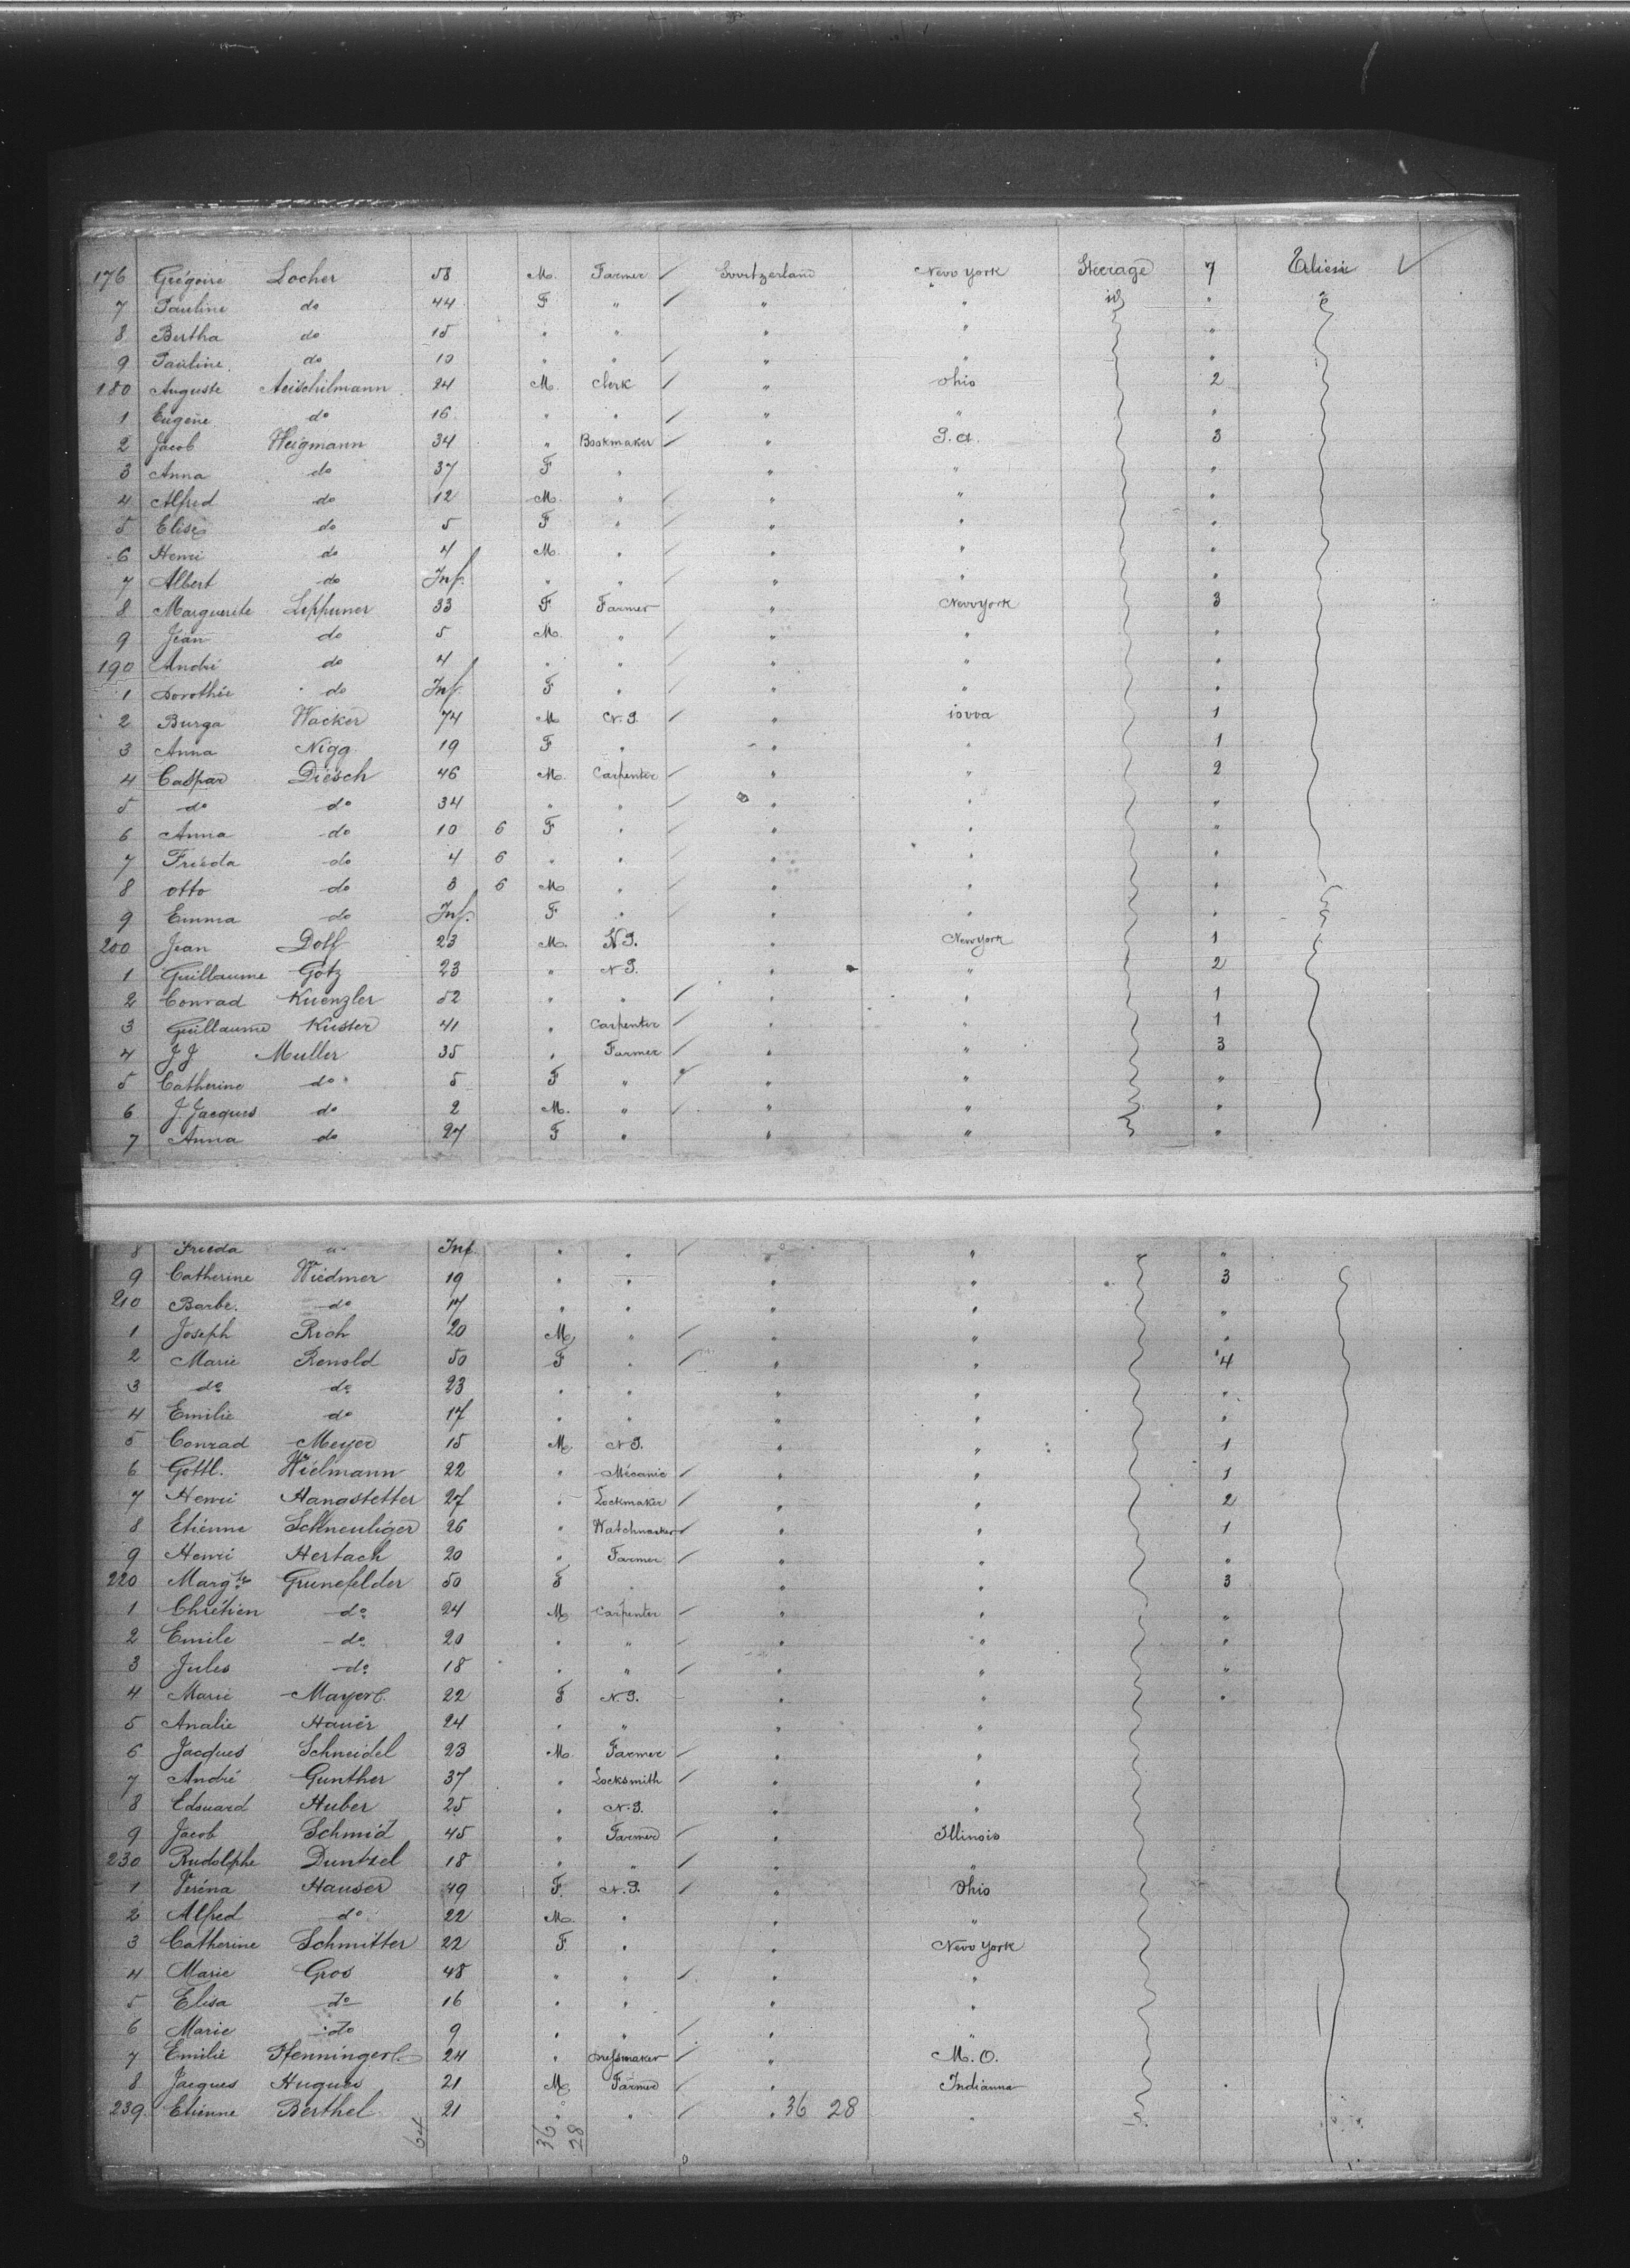 176 Grégoire Locher 58 M. Farmer Switzerland New York Steerage 7
7 Pauline do 44 F " " " id "
8 Bertha do 15 " " " " "
9 Pauline do 10 " " " " "
180 Auguste Aeischilmann 24 M. Clerk " Ohio 2
1 Eugène do 16 " " " " "
2 Jacob Weigmann 34 " Bookmaker " P. a. 3
3 Anna do 37 F " " " "
4 Alfred do 12 M. " " " "
5 Elise do 5 F " " " "
6 Henri do 4 M. " " " "
7 Albert do Inf. " " " " "
8 Marguerite Lippuner 33 F Farmer " New York 3
9 Jean do 5 M. " " " "
190 André do 4 " " " " "
1 Dorothée do Inf. F " " " "
2 Burga Wacker 74 M N. P. " iowa 1
3 Anna Nigg 19 F " " " 1
4 Caspar Diesch 46 M. Carpenter " " 2
5 do do 34 " " " " "
6 Anna do 10 6 F " " " "
7 Frieda do 4 6 " " " " "
8 otto do 3 6 M " " " "
9 Emma do Inf. F " " " "
200 Jean Dolf 23 M. N P. " New York 1
1 Guillaume Götz 23 " N P. " " 2
2 Conrad Kuenzler 52 " " " " 1
3 Guillaume Kuster 41 " Carpenter " " 1
4 J J Muller 35 " Farmer " " 3
5 Catherine do 5 F " " " "
6 J. Jacques do 2 M. " " " "
7 Anna do 27 F " " " "
8 Frieda Inf. " " " " "
9 Catherine Wiedmer 19 " " " " 3
210 Barbe. do 17 " " " " "
1 Joseph Rich 20 M. " " " "
2 Marie Renold 50 F " " " 4
3 do do 23 " " " " "
4 Emilie do 17 " " " " "
5 Conrad Meyer 15 M. N P. " " 1
6 Gottl. Wielmann 22 " Mécanic " " 1
7 Henri Hangstetter 27 " Lockmaker " " 2
8 Etienne Schneuliger 26 " Watchmaker " " 1
9 Henri Hertach 20 " Farmer " " "
220 Margte Grunefelder 50 F " " " 3
1 Chrétien do 24 M Carpenter " " "
2 Emile do 20 " " " " "
3 Jules do 18 " " " " "
4 Marie Mayer 22 F N. P. " "
5 Analie Hauer 24 " " " "
6 Jacques Schneidel 23 M. Farmer " "
7 André Gunther 37 " Locksmith " "
8 Edouard Huber 25 " N. P. " "
9 Jacob Schmid 45 " Farmer " Illinois
230 Rudolphe Duntzel 18 " " " "
1 Veréna Hauser 49 F. N. P. " Ohio
2 Alfred do 22 M. " " "
3 Catherine Schmitter 22 F " " New York
4 Marie Gros 48 " " " "
5 Elisa do 16 " " " "
6 Marie do 9 " " " "
7 Emilie Pfenninger 24 " Dressmaker " M. O.
8 Jacques Hugues 21 M. Farmer " Indianna
239 Etienne Berthel 21 " " " 36 28 "
64 36 28